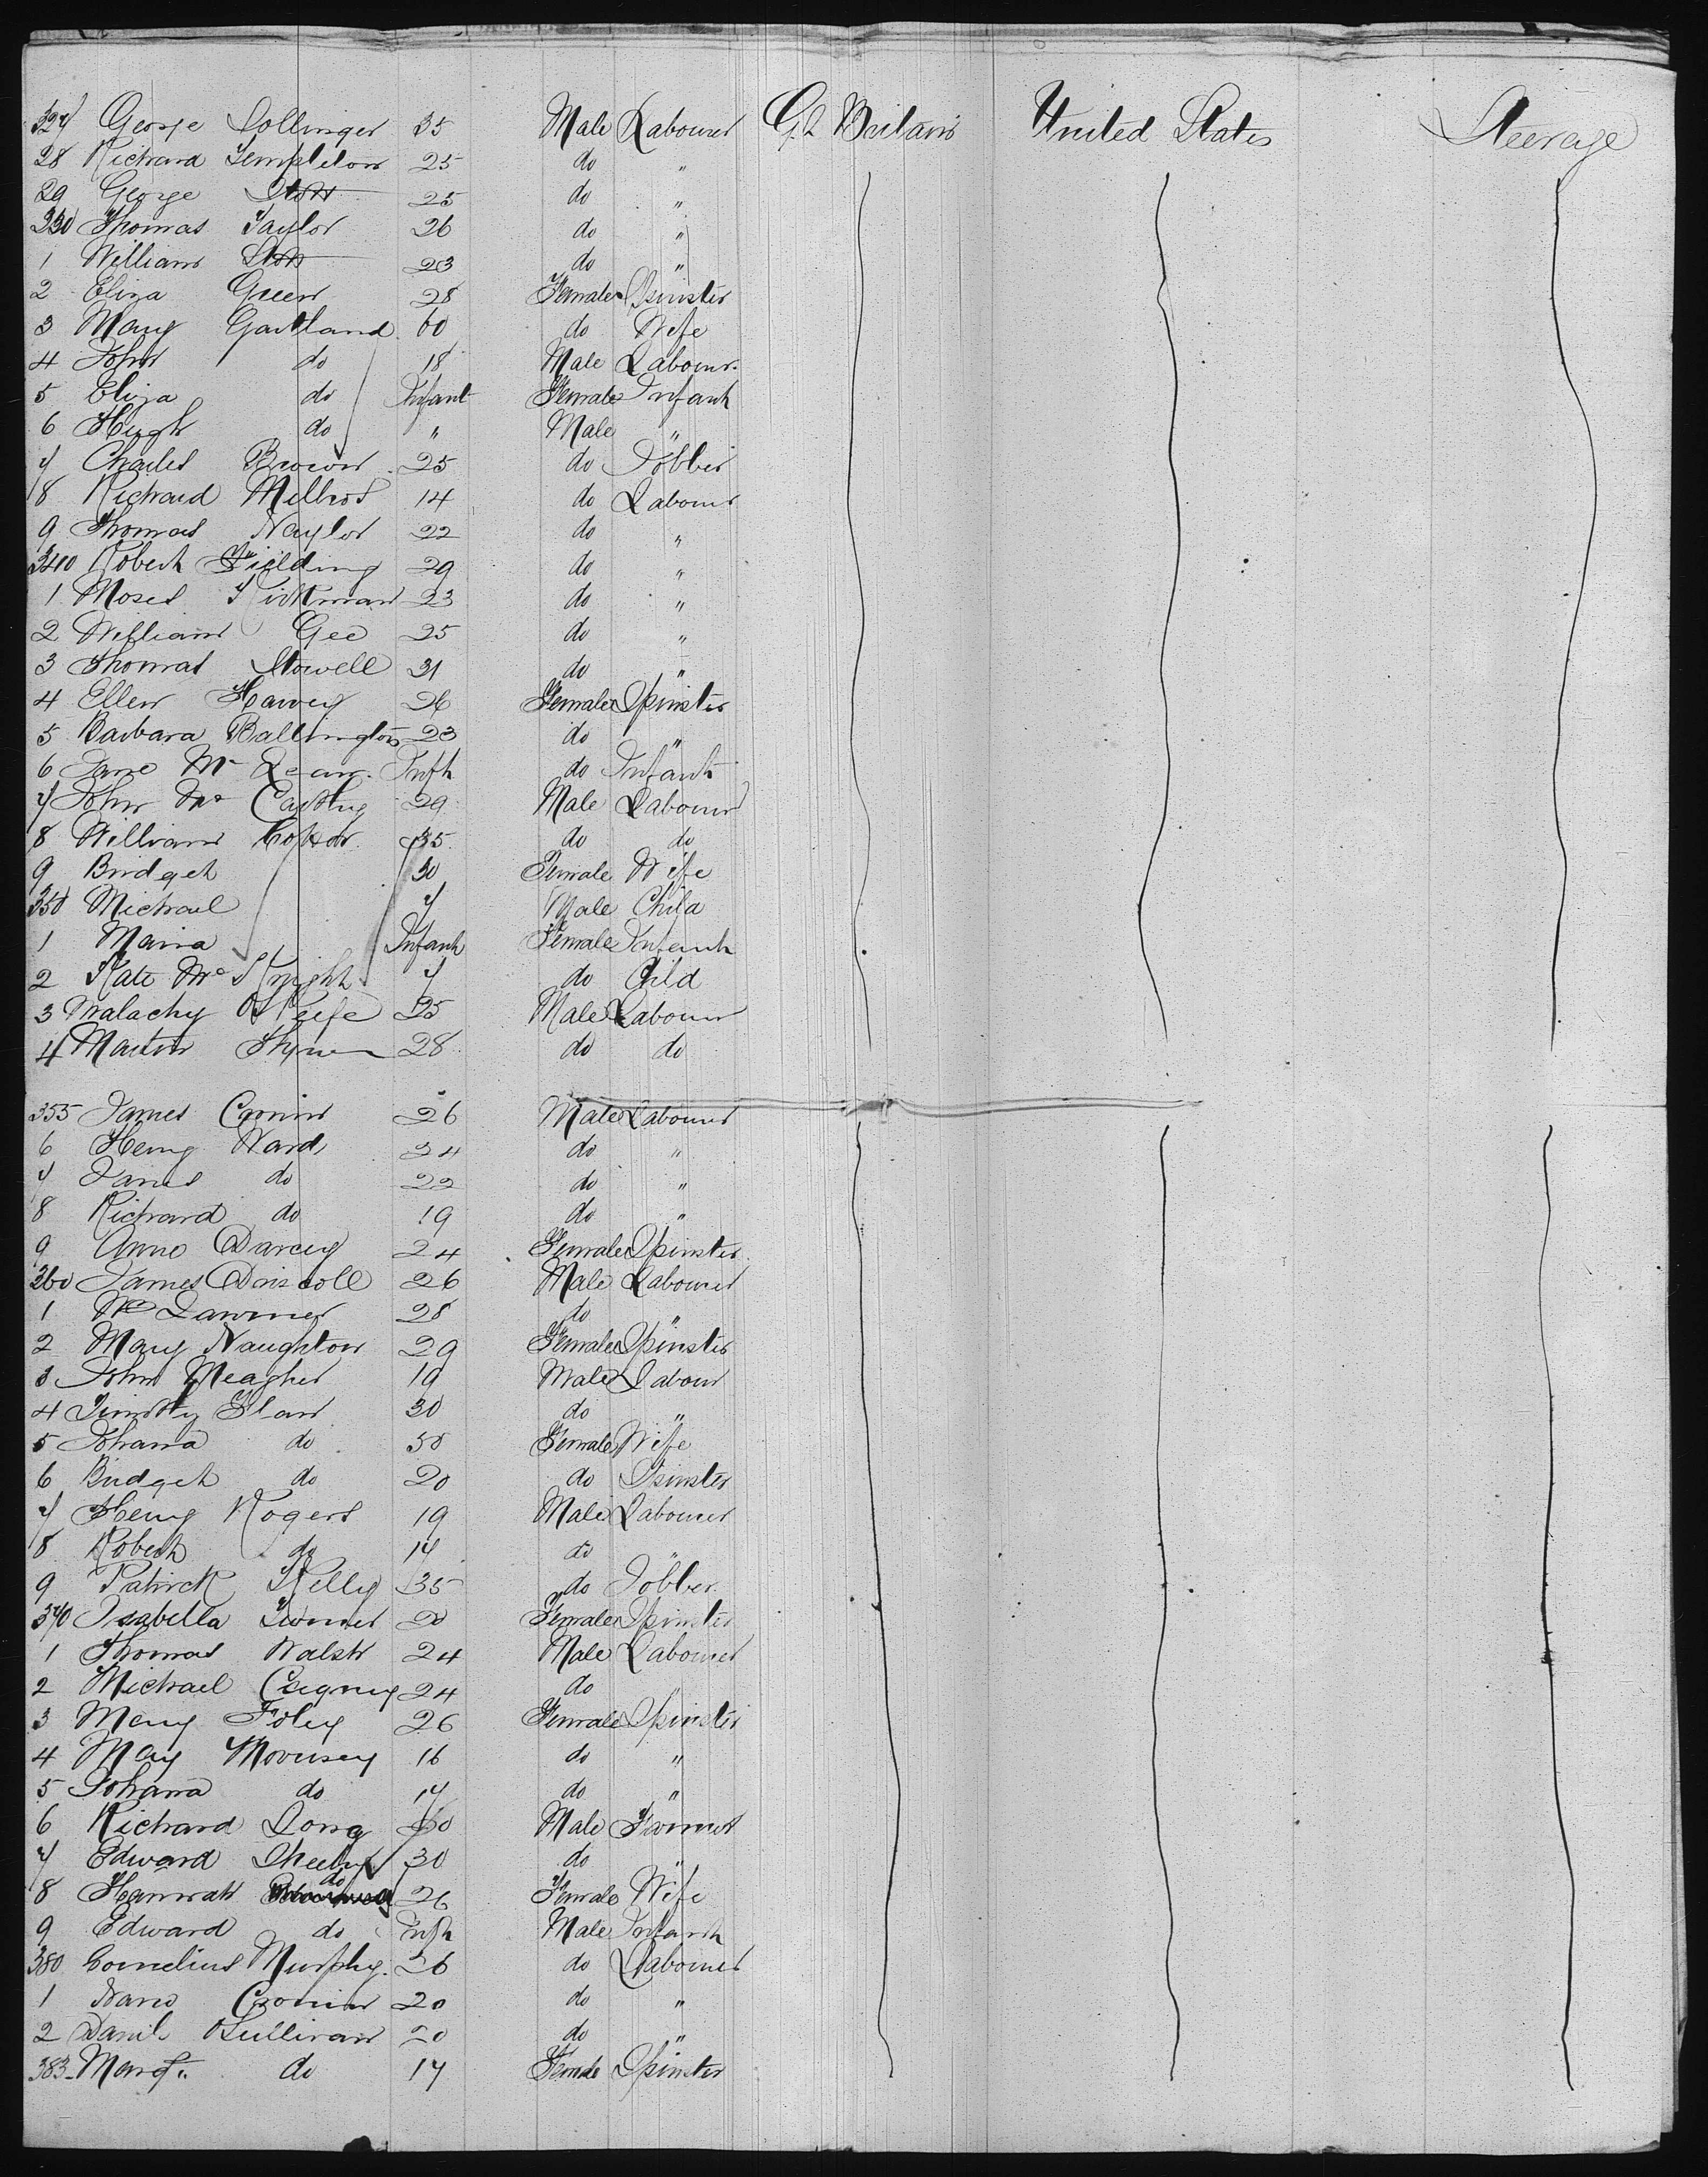 327 George Dollinger 35 Male Labourer Gt Britain United States Steerage
28 Richard Templeton 25 do "
29 George Stott 25 do "
330 Thomas Taylor 26 do "
1 William Stott 23 do "
2 Eliza Green 28 Female Spinster
3 Mary Gartland 60 do Wife
4 John do 18 Male Labour
5 Eliza do Infant Female Infant
6 Hugh do " Male "
7 Charles Brown 25 do Jobber
8 Richard 14 do Labour
9 Thomas Naylor 22 do "
340 Robert Fielding 29 do "
1 Moses 23 do "
2 William Gee 25 do "
3 Thomas Stowell 31 do "
4 Ellen Harvey 26 Female Spinster
5 Barbara Ballington 23 do "
6 Jane Mc Inft do Infant
7 John Mc Carthy 29 Male Labourer
8 William 35 do do
9 Bridget 30 Female Wife
350 Michael 7 Male Child
1 Maria Infant Female Infant
2 Kate Mc Knight 7 do Child
3 Malachy O Keefe 25 Male Labourer
4 Martin 28 do do
355 James Cronin 26 Male Labourer
6 Henry Ward 24 do "
7 James do 22 do "
8 Richard do 19 do "
9 Anne Darcey 24 Female Spinster
360 James Driscoll 26 Male Labourer
1 28 do "
2 Mary Naughton 29 Female Spinster
3 John Meagher 19 Male Labour
4 Timothy 30 do "
5 Johana do 50 Female Wife
6 Bridget do 20 do Spinster
7 Henry Rogers 19 Male Labourer
8 Robert do 14 do "
9 Patrick Kelly 35 do Jobber
370 Isabella 20 Female Spinster
1 Thomas Walsh 24 Male Labourer
2 Michael 24 do "
3 Mary Foley 26 Female Spinster
4 Mary 16 do "
5 Johana do 17 do "
6 Richard Long 60 Male Farmer
7 Edward Sheehy 30 do "
8 Hannah do 26 Female Wife
9 Edward do Inft Male Infant
380 Cornelius Murphy 26 do Labourer
1 Cronin 20 do "
2 Danil OSullivan 20 do "
383 Margt. do 17 Female Spinster